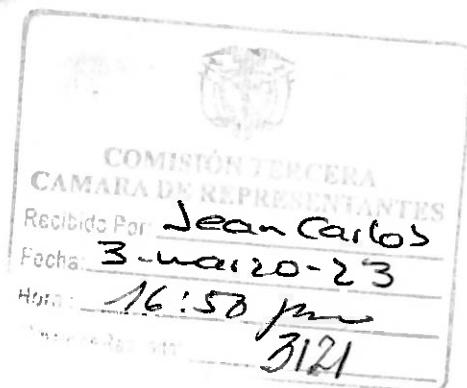 COMISIÓN TERCERA
CAMARA DE REPRESENTANTES
Recibido Por: Jean Carlos
Fecha: 3-marzo-23
Hora: 16:50 pm
3121